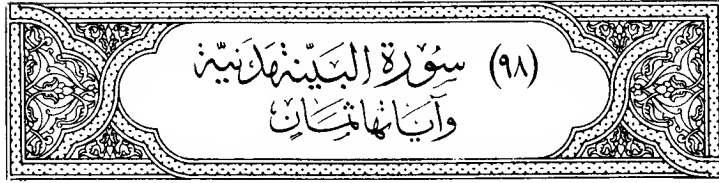 (٩٨) سُورَة البَيِّنَة مَدَنيَّة
وَآيَاتهَا ثَمَانٍ